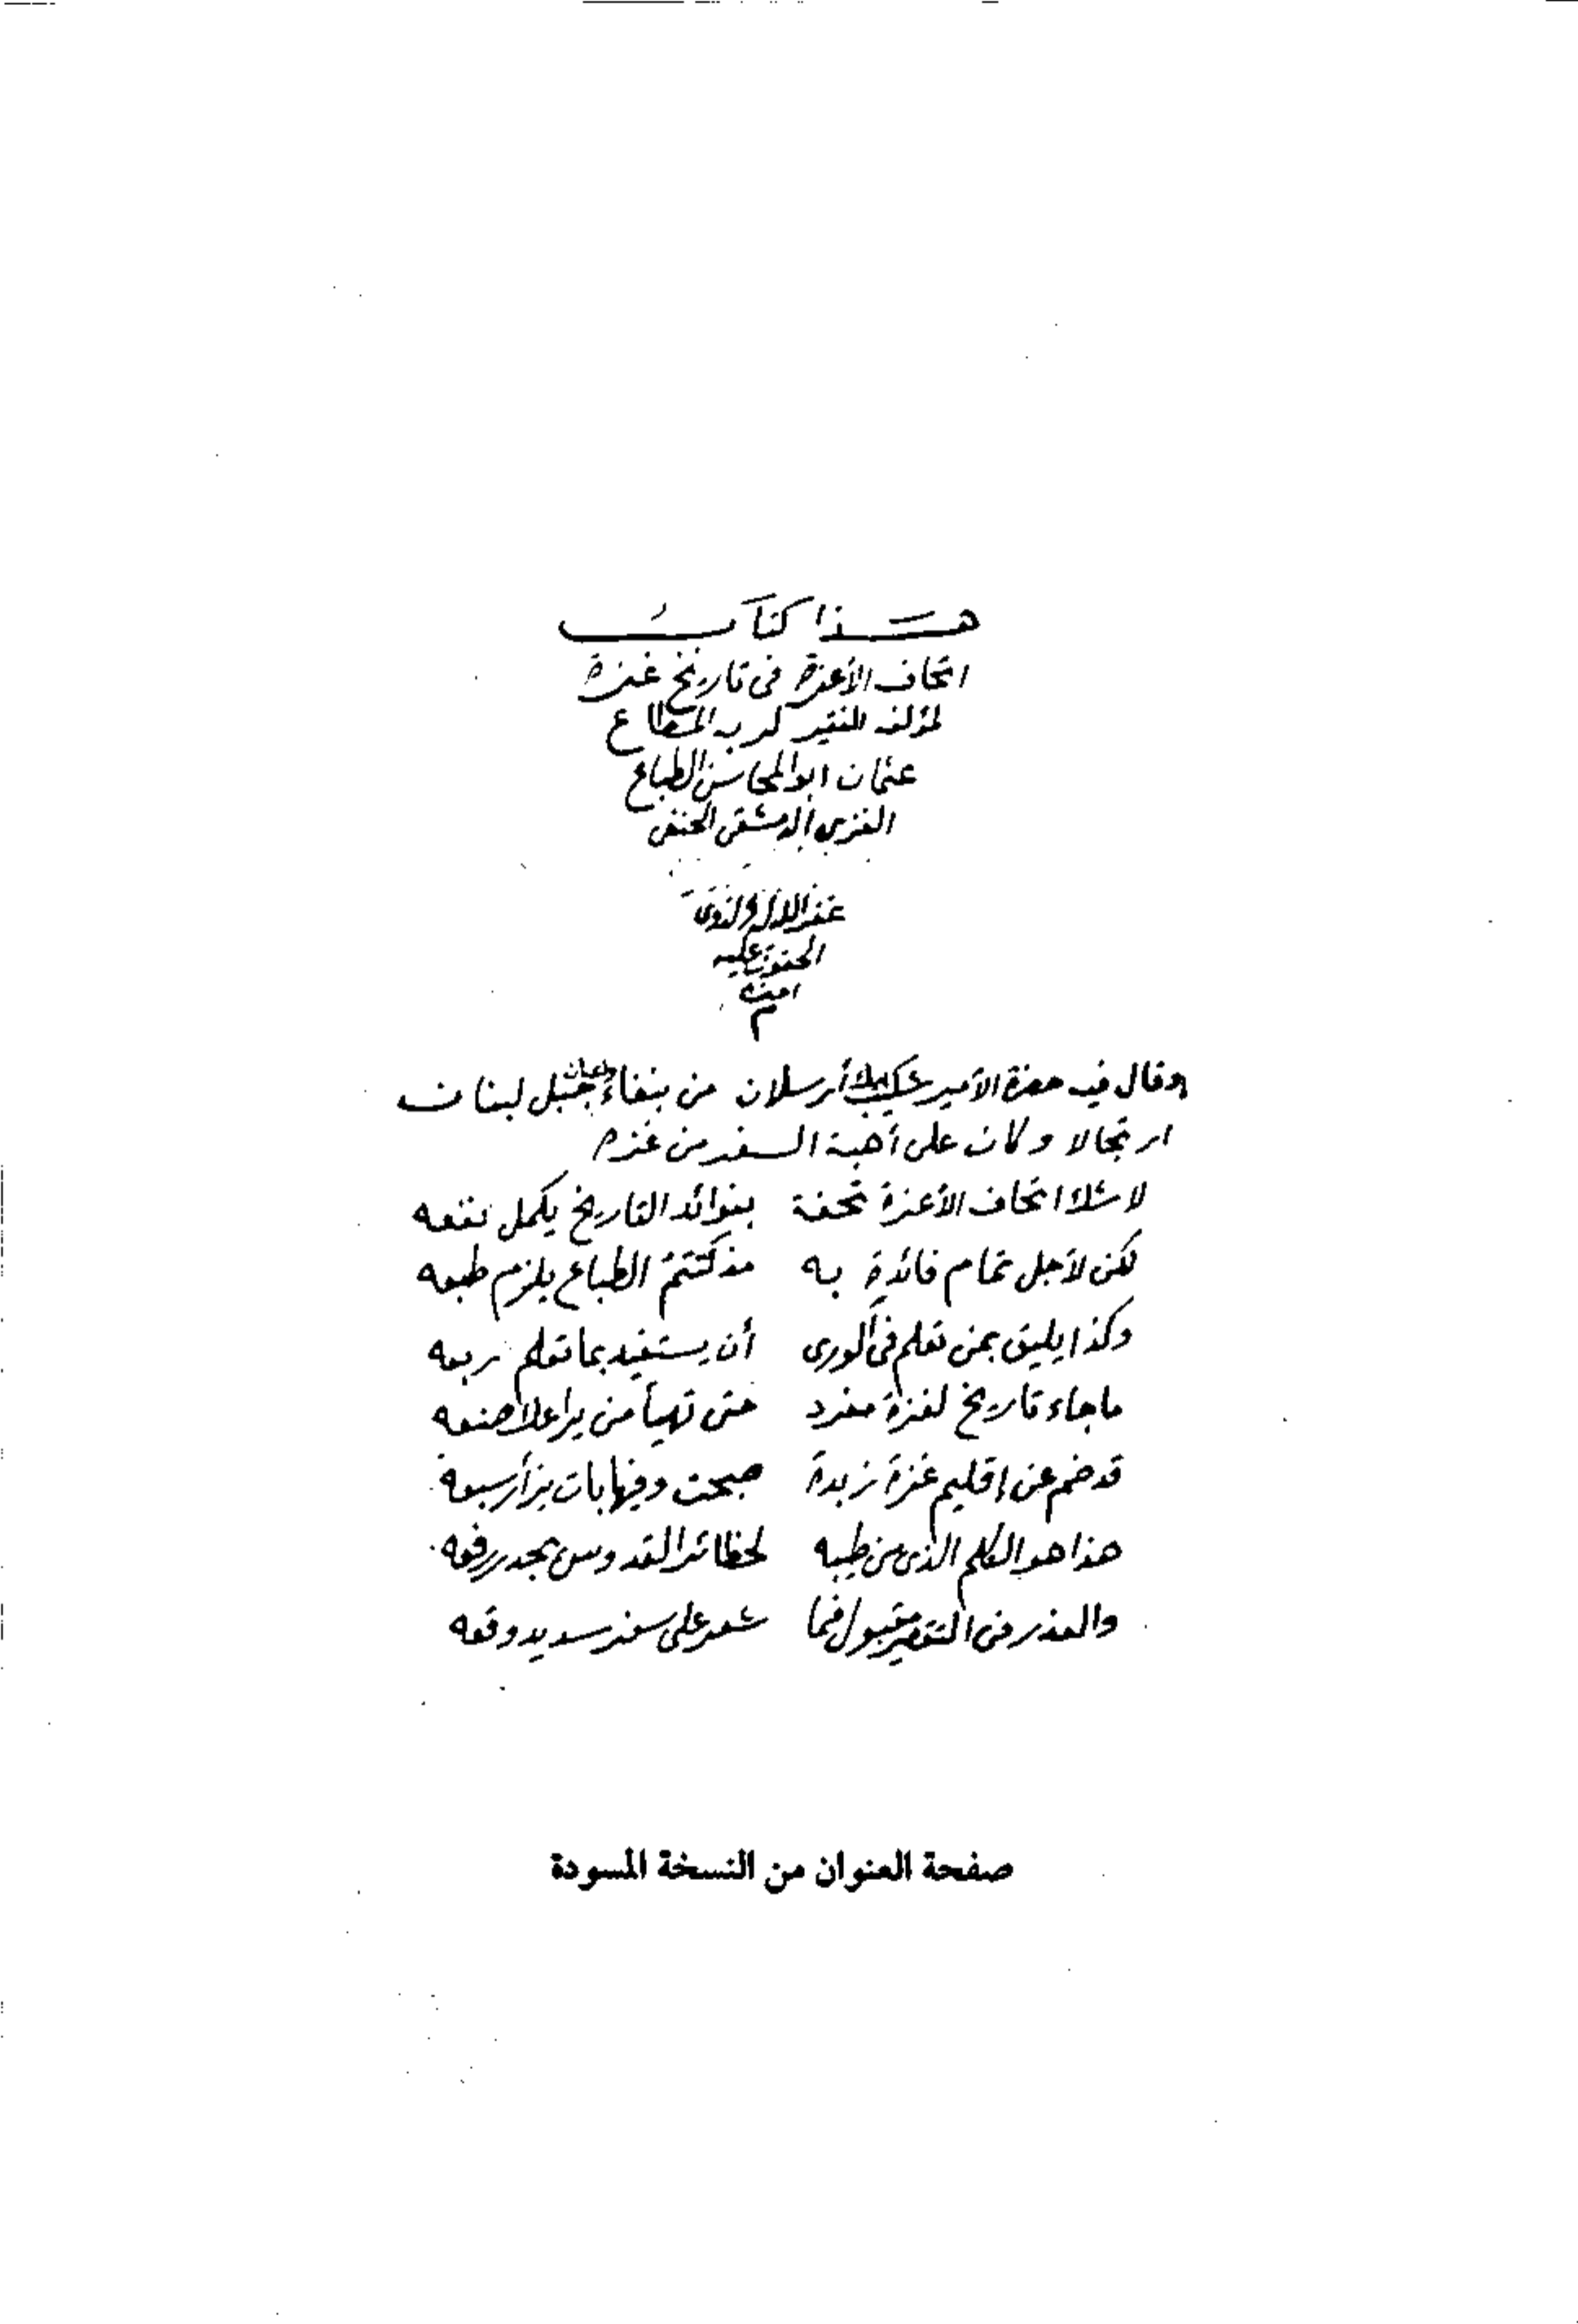 هذا كتاب
اتحاف الأعزة في تاريخ غزة
لمؤلفه الفقير لربه المطاع
عثمان ابو المحاسن الطباع
الغزي الدمشقي الحنفي
غفر الله له ولذوي
الحقوق عليه
امين
م
وقال فيه حضرة الأمير شكيب بك أرسلان من بلغاء وأعيان جبل لبنان
ارتجالا وكان على أهبة السفر من غزه
لا شك اتحاف الأعزة تحفة بفوائد التاريخ يكمل نفعه
لكن لأجل تمام فائدة به مذ كنتم الطباع يلزم طبعه
وكذا يليق بمن تعلم في الورى أن يستفيد بما تعلم ربعه
ما جاء تاريخ لغزة مفرد حتى تهيأ من يراعك صنعه
قد ضم عن إقليم غزة زبدة صحت وفيها بات يزأر سبعه
هذا هو الكلم الذي من طيبه لحظائر القدوس يجدر رفعه
والعذر في التقصير مقبول فما شعر على سفر سديد وقعه
صفحة العنوان من النسخة المسودة